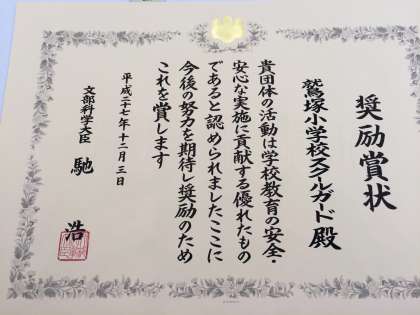 奨励賞状
鷲塚小学校スクールガード殿
貴団体の活動は学校教育の安全・
安心な実施に貢献する優れたもの
であると認められましたここに
今後の努力を期待し奨励のため
これを賞します
平成二十七年十二月三日
文部科学大臣 馳浩